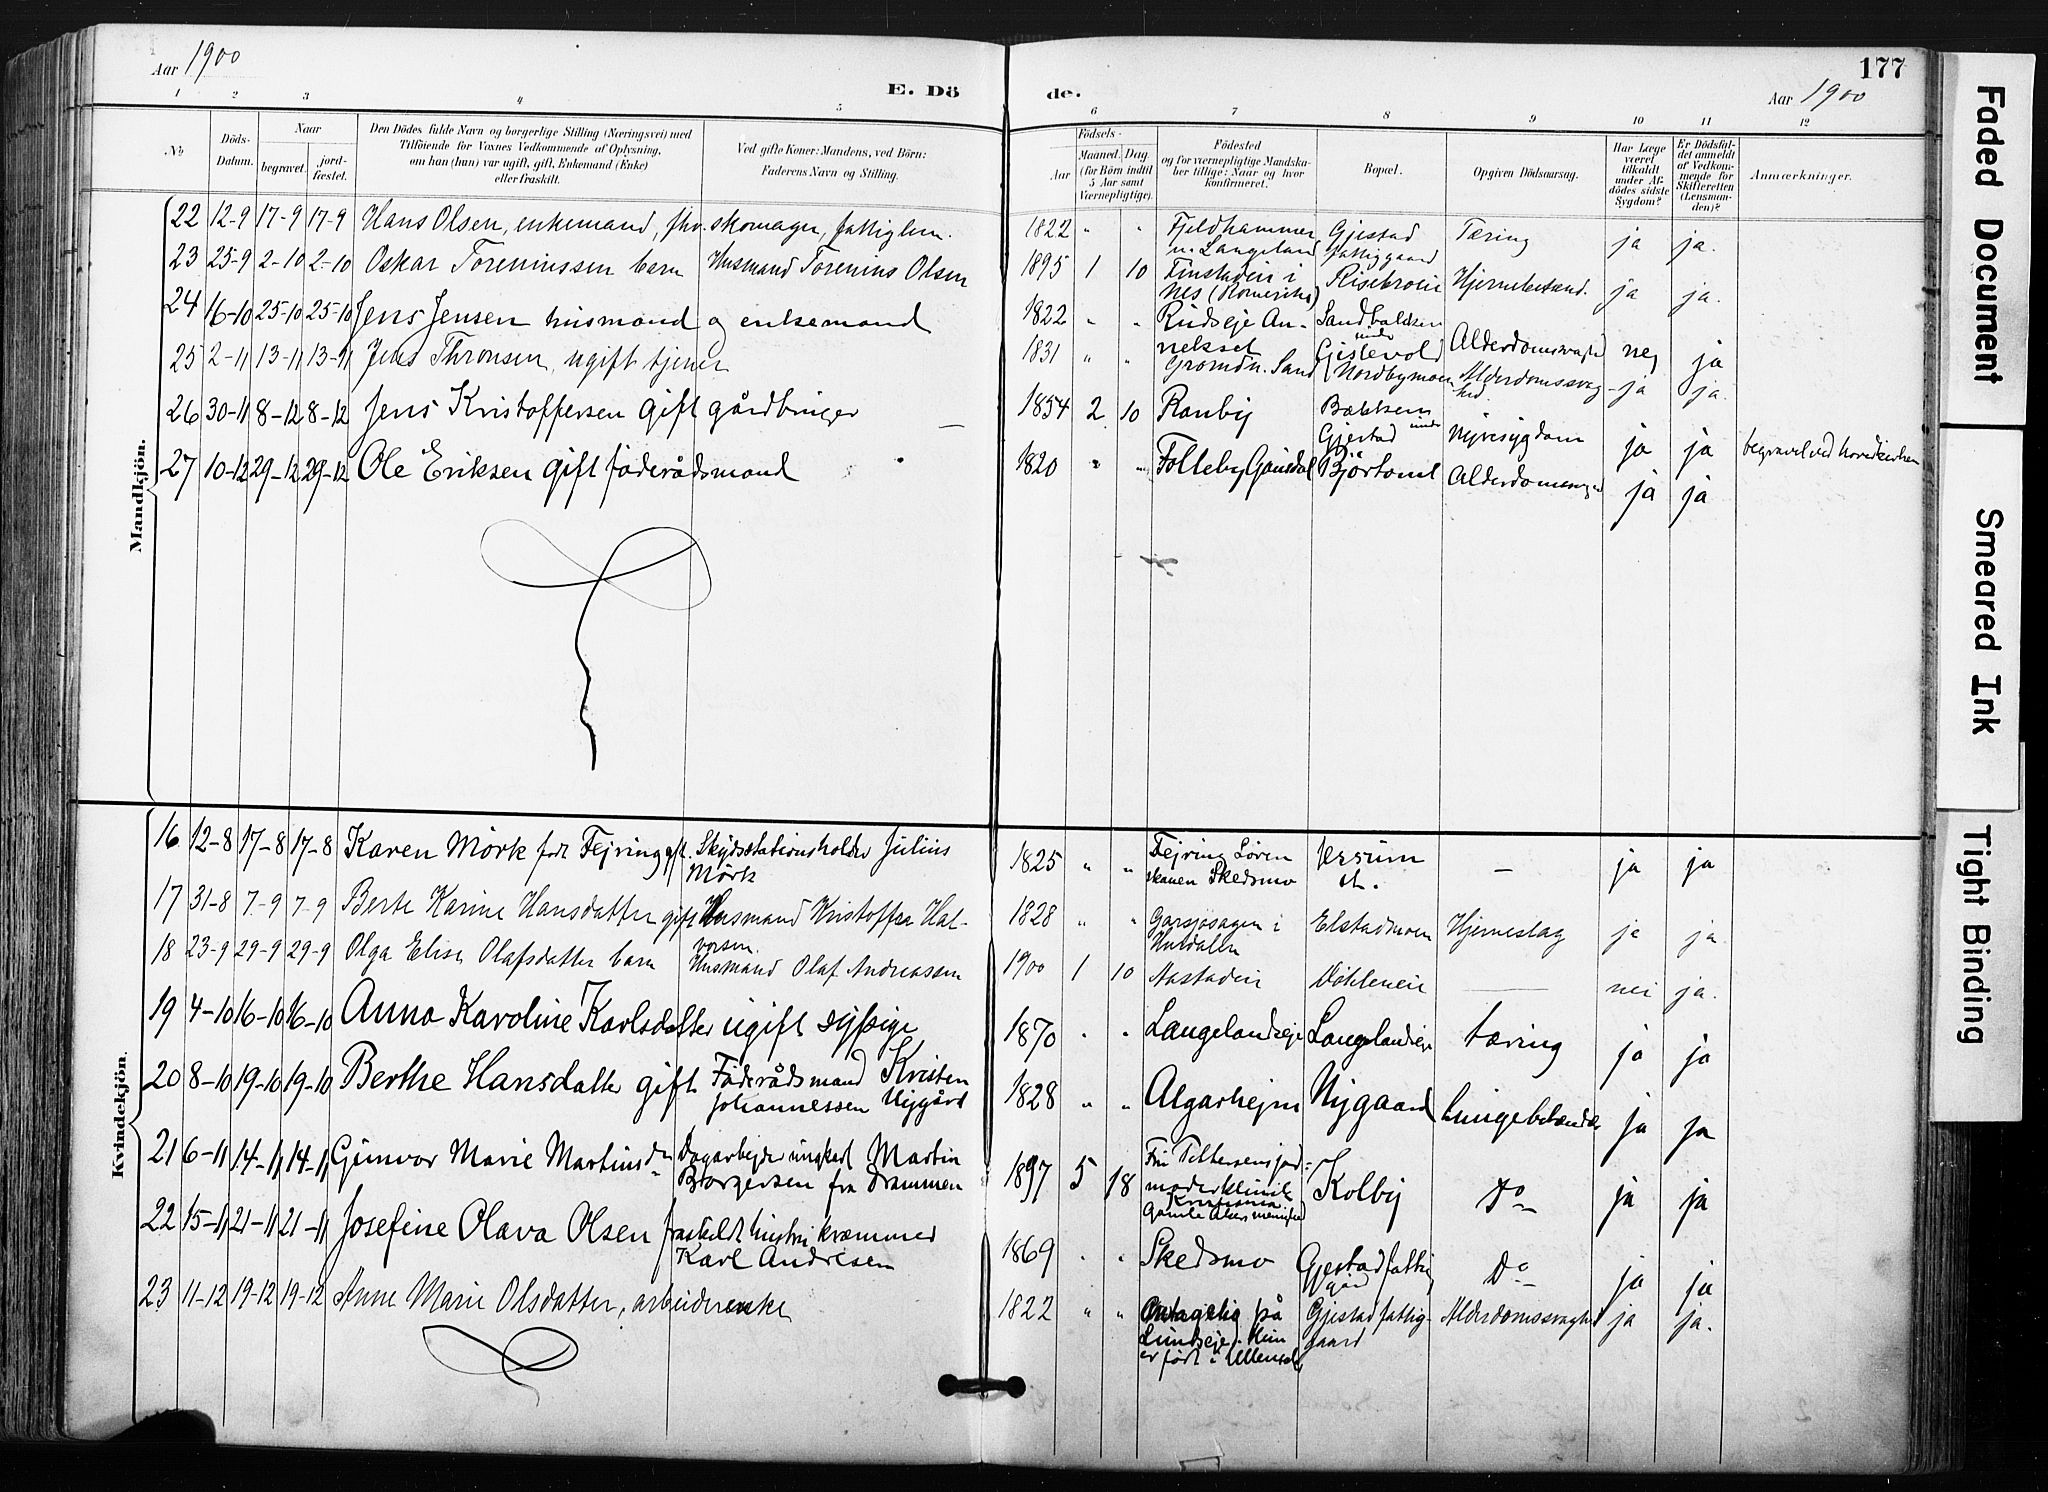 Aar 1900
E. Dö
de.
177
Aar 1900
1 2 3 4 5 6 7 8 9 10 11 12
№
Döds-Datum.
Naar
begravet.
jord-fæstet.
Den Dödes fulde Navn og borgerlige Stilling (Næringsvei) med
Tilföiende for Voxnes Vedkommende af Oplysning,
om han (hun) var ugift, gift, Enkemand (Enke)
eller fraskilt.
Ved gifte Koner: Mandens, ved Börn:
Faderens Navn og Stilling.
Födsels-
Aar
Maaned. Dag
(for Börn indtil
5 Aar samt
Værnepligtige).
Födested
og for værnepligtige Mandska-
ber tillige: Naar og hvor
konfirmeret.
Bopæl.
Opgiven Dödsaarsag.
Har Læge
været
tilkaldt
under Af-
dödes sidste
Sygdom?
Er Dödsfal-
det anmeldt
af Vedkom-
mende for
Skifteretten
(Lensman-
den)?
Anmærkninger.
Mandkjön.
22 12-9 17-9 17-9 Hans Olsen, enkemand, fhv. skomager, fattiglem. 1822 " " Fjeldhammer u. Langeland Gjestad fattiggaard Tæring ja ja.
23 25-9 2-10 2-10 Oskar Toreniussen barn Husmand Torenius Olsen 1895 1 10 Finstadeie i Nes (Romerike) Risebroeie Hjernebetænd. ja ja.
24 16-10 25-10 25-10 Jens Jensen husmand og enkemand 1822 " " Rudseje An-nekset Sandbakken under Gislevold Alderdomssvaghed nej ja
25 2-11 13-11 13-11 Jens Thronsen, ugift tjener 1831 " " Nordbymoen Alderdomssvag-hed. ja ja.
26 30-11 8-12 8-12 Jens Kristoffersen gift gårdbruger 1854 2 10 Ranby Bakken under Gjestad Nyresygdom ja ja begravet ved hovedkirken
27 10-12 29-12 29-12 Ole Eriksen gift föderådsmand 1820 " " Folleby Gausdal Björtomt Alderdomssvaghed ja ja
Kvindekjön.
16 12-8 17-8 17-8 Karen Mörk född Fejring gift. Skydsstationsholder Julius Mörk 1825 " " Fejring Lören skauen Skedsmo Jessum st. — ja ja
17 31-8 7-9 7-9 Berte Karine Hansdatter gift Husmand Kristoffer Hal-vorsen 1828 " " Garsjösagen i Hurdalen Elstadmoen Hjerneslag ja ja.
18 23-9 29-9 29-9 Olga Elise Olafsdatter barn Husmand Olaf Andreassen 1900 1 10 Döhleneie — nei ja.
19 4-10 16-10 16-10 Anna Karoline Karlsdatter ugift sypige 1870 " " Langelandseje Langelandseje tæring ja ja
20 8-10 19-10 19-10 Berthe Hansdatter gift Föderådsmand Kristen Johannessen Nygård 1828 " " Algarhejm Nygaard Lungebetændelse ja ja
21 6-11 14-11 14-11 Gunvor Marie Martinsdr. Dagarbejder ungkarl Martin Borgersen fra Drammen 1897 5 18 Fru Pettersens jord-moderklinik Kristiania Gamle Akers menighed Kolby Do ja ja
22 15-11 21-11 21-11 Josefine Olava Olsen fraskildt hustru kræmmer Karl Andresen 1869 " " Skedsmo Gjestad fattig gård Do ja ja
23 11-12 19-12 19-12 Anne Marie Olsdatter, arbeiderenke 1822 " " Antagelig på Lundseje. Hun er født i Ullensaker Gjestad fattig-gaard Alderdomssvaghed ja ja.
Faded Document
Smeared Ink
Tight Binding